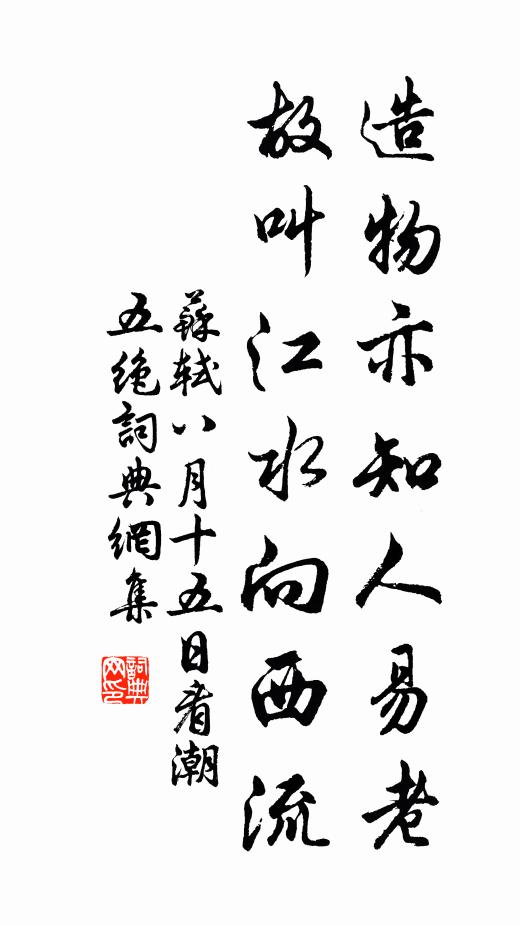 造物亦知人易老
故叫江水向西流
蘇軾八月十五日看潮
五绝詞典網集
詞典网印